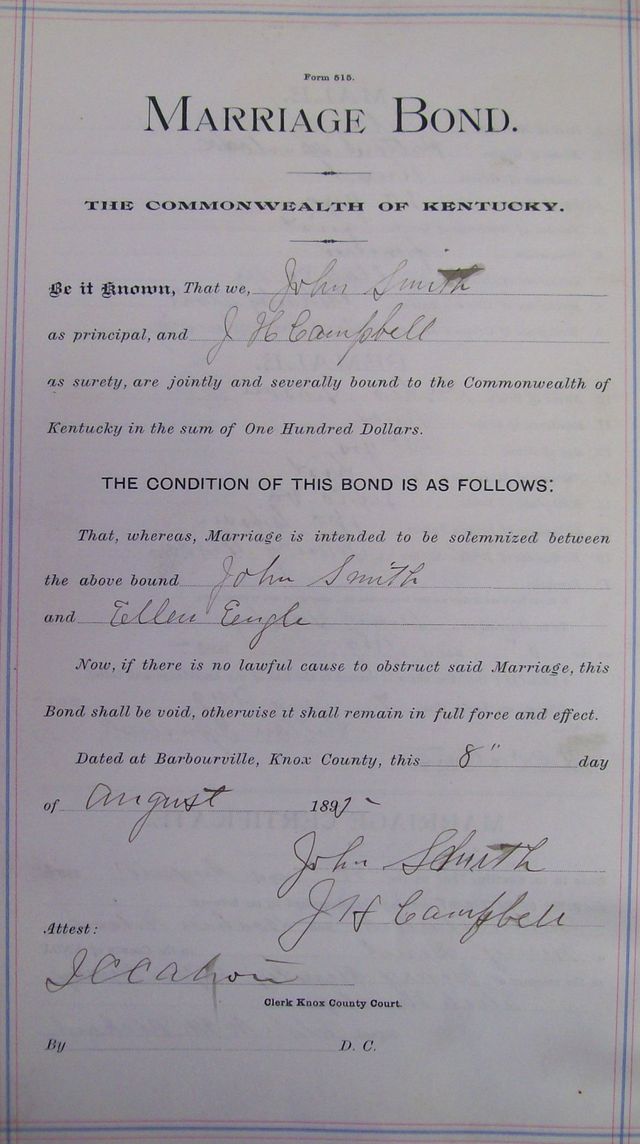 Form 515.
MARRIAGE BOND.
THE COMMONWEALTH OF KENTUCKY.
Be it Known, That we, John Smith
as principal, and J H Campbell
as surety, are jointly and severally bound to the Commonwealth of
Kentucky in the sum of One Hundred Dollars.
THE CONDITION OF THIS BOND IS AS FOLLOWS:
That, whereas, Marriage is intended to be solemnized between
the above bound John Smith
and Ellen Eengle
Now, if there is no lawful cause to obstruct said Marriage, this
Bond shall be void, otherwise it shall remain in full force and effect.
Dated at Barbourville, Knox County, this 8" day
of August 189
John Smith
J H Campbell
Attest:
Clerk Knox County Court.
By D. C.